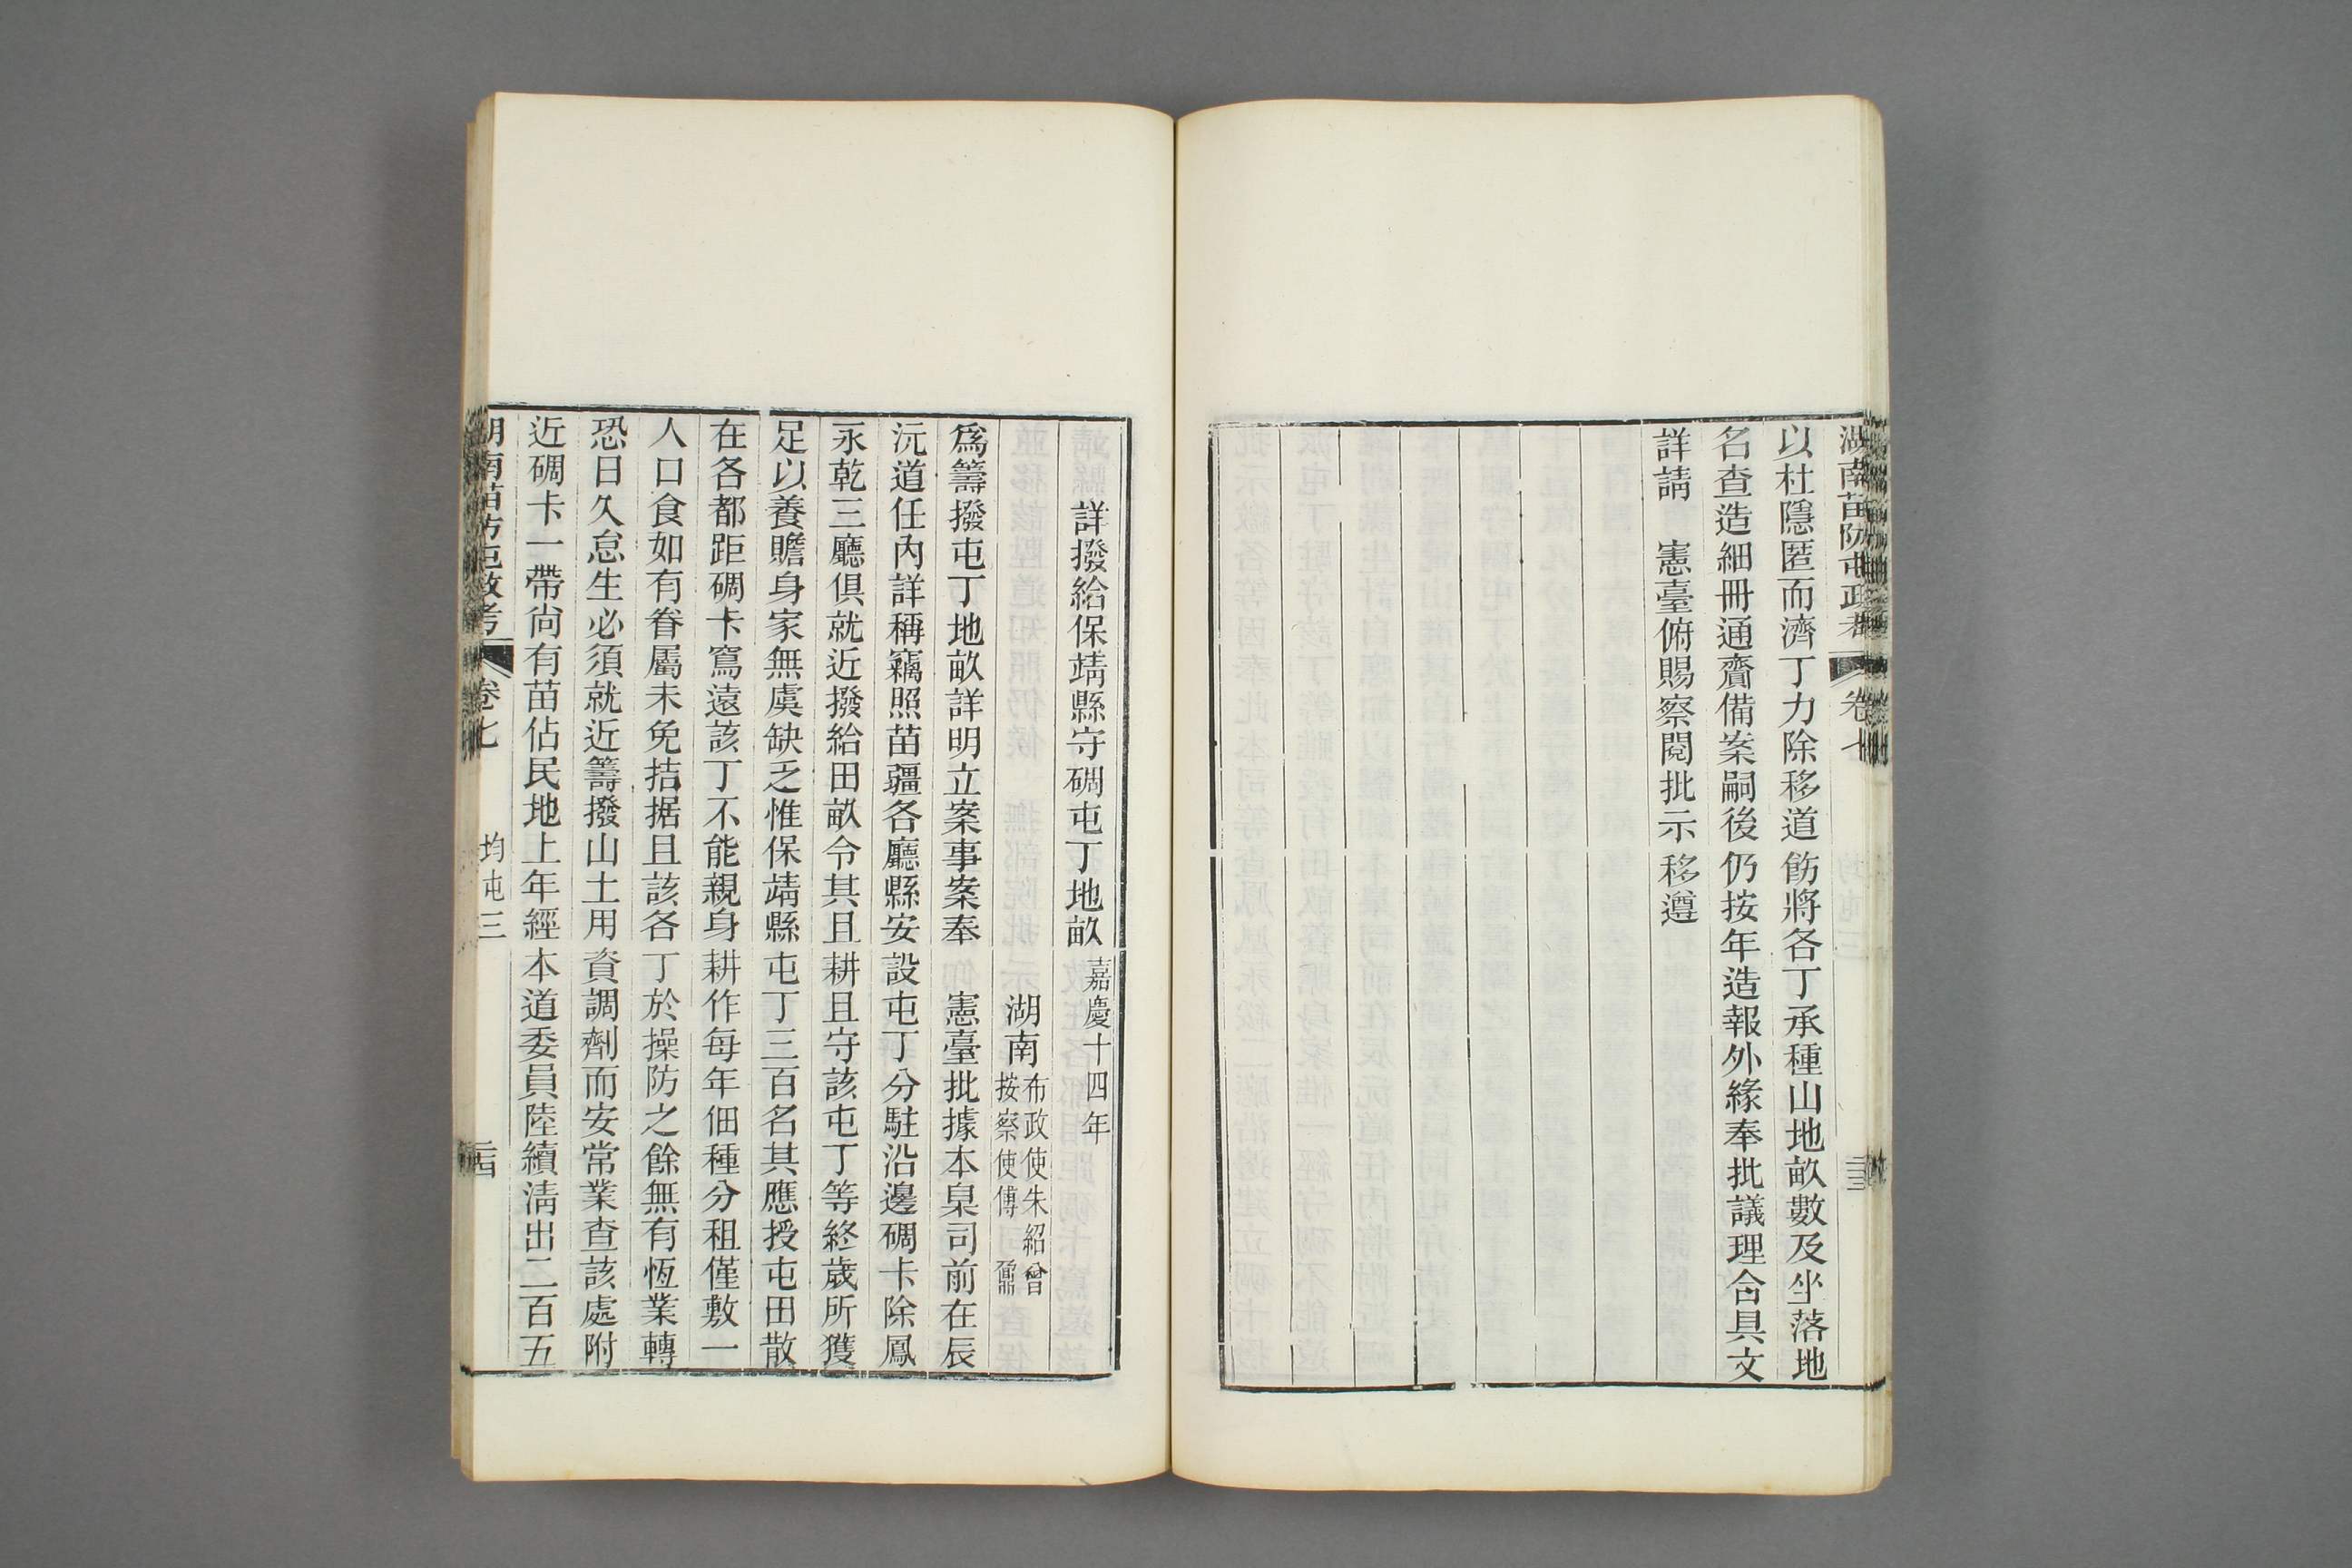 湖南苗防屯政考 卷七
以杜隱匿而濟丁力除移道飭將各丁承種山地畝數及坐落地
名查造細冊通齎備案嗣後仍按年造報外緣奉批議理合具文
詳請 憲臺俯賜察閱批示移遵
詳撥給保靖縣守碉屯丁地畝 嘉慶十四年
湖南布政使朱紹曾
按察使傅鼐
爲籌撥屯丁地畝詳明立案事案奉 憲臺批據本臬司前在辰
沅道任內詳稱竊照苗疆各廳縣安設屯丁分駐沿邊碉卡除鳳
永乾三廳俱就近撥給田畝令其且耕且守該屯丁等終歲所獲
足以養贍身家無虞缺乏惟保靖縣屯丁三百名其應授屯田散
在各都距碉卡寫遠該丁不能親身耕作每年佃種分租僅敷一
人口食如有眷屬未免拮据且該各丁於操防之餘無有恆業轉
恐日久怠生必須就近籌撥山土用資調劑而安常業查該處附
近碉卡一帶尚有苗佔民地上年經本道委員陸續清出二百五
湖南苗防屯政考 卷七 均屯三